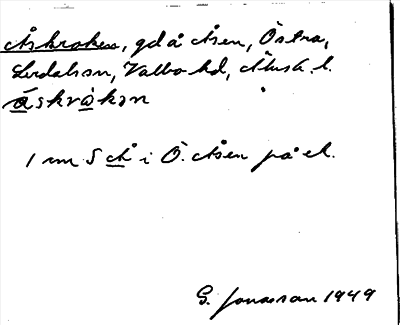 Åskroken, gd å Åsen, Östra,
Lerdalssn, Valbo hd, Älvsb. l.
å̀skrὰkən
1 m S Å i Ö. Åsen på el.
G. Jonasson 1949